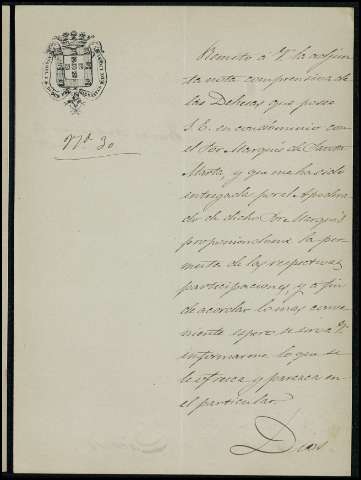 Nº 30
Remito á V. la adjun-
ta nota comprensiva de
las Dehesas que posee
S. E. en condominio con
el Sor Marqués de Santa
Marta, y que me ha sido
entregada por el Apodera-
do de dicho Sor Marqués
proponiendome la per-
muta de las respectivas
participaciones, y á fin
de acordar lo mas conve-
niente espero se sirva V.
informarme lo que se
le ofrezca y parezca en
el particular.
Dios